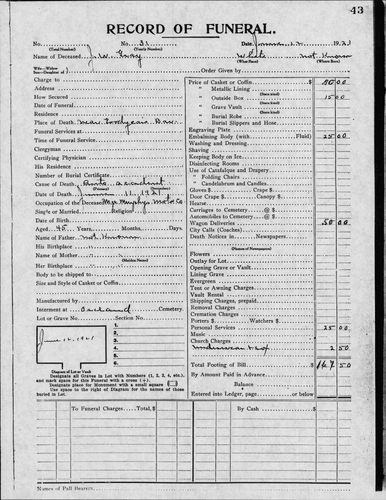 43
RECORD OF FUNERAL.
No. No. 51 Date, 1921
(Total Number) (Yearly Number)
Name of Deceased J. W. White Not Known
(What Race) (Where Born)
Wife—Widow Son—Daughter of Order Given by
Charge to
Address
How Secured
Date of Funeral
Residence
Place of Death near
Funeral Services at
Time of Funeral Service
Clergyman
Certifying Physician
His Residence
Number of Burial Certificate
Cause of Death Auto accident
Date of Death 11, 1921
Occupation of the Deceased Mgr Murphys Motor Co
Single or Married Religion
Date of Birth
Aged 45 Years, Months, Days
Name of Father Not Known
His Birthplace
Name of Mother
(Maiden Name)
Her Birthplace
Body to be shipped to
Size and Style of Casket or Coffin
Manufactured by
Interment at Cemetery
Lot or Grave No. Section No.
1.
2.
3.
4.
5.
6.
Diagram of Lot or Vault
Designate all Graves in Lot with Numbers (1, 2, 3, 4, etc.), and mark space for this Funeral with a cross (+).
Designate place for Monument to a small square
Use space to the right of Diagram for the names of those buried in Lot.
Price of Casket or Coffin $ 00
" Metallic Lining
" Outside Box 15 00
" Grave Vault
" Burial Robe
" Burial Slippers and Hose
Engraving Plate
Embalming Body (with Fluid) 25 00
Washing and Dressing
Shaving
Keeping Body on Ice
Disinfecting Rooms
Use of Catafalque and Drapery
" Folding Chairs
" Candelabrum and Candles
Gloves $ Crape $
Door Crape $ Canopy $
Hearse
Carriages to Cemetery @ $
Automobiles to Cemetery @ $
Wagon Deliveries 00
City Calls (Coaches)
Death Notices in Newspapers
(Names of Newspapers)
Flowers
Outlay for Lot
Opening Grave or Vault
Lining Grave
Evergreen
Tent or Awning Charges
Vault Rental
Shipping Charges, prepaid
Removal Charges
Cremation Charges
Porters $ Watchers $
Personal Services 25 00
Music
Church Charges
Underwear 2 50
Total Footing of Bill $ 167 50
By Amount Paid in Advance
Balance
Entered into Ledger, page or below.
To Funeral Charges Total, $ By Cash $
Names of Pall Bearers